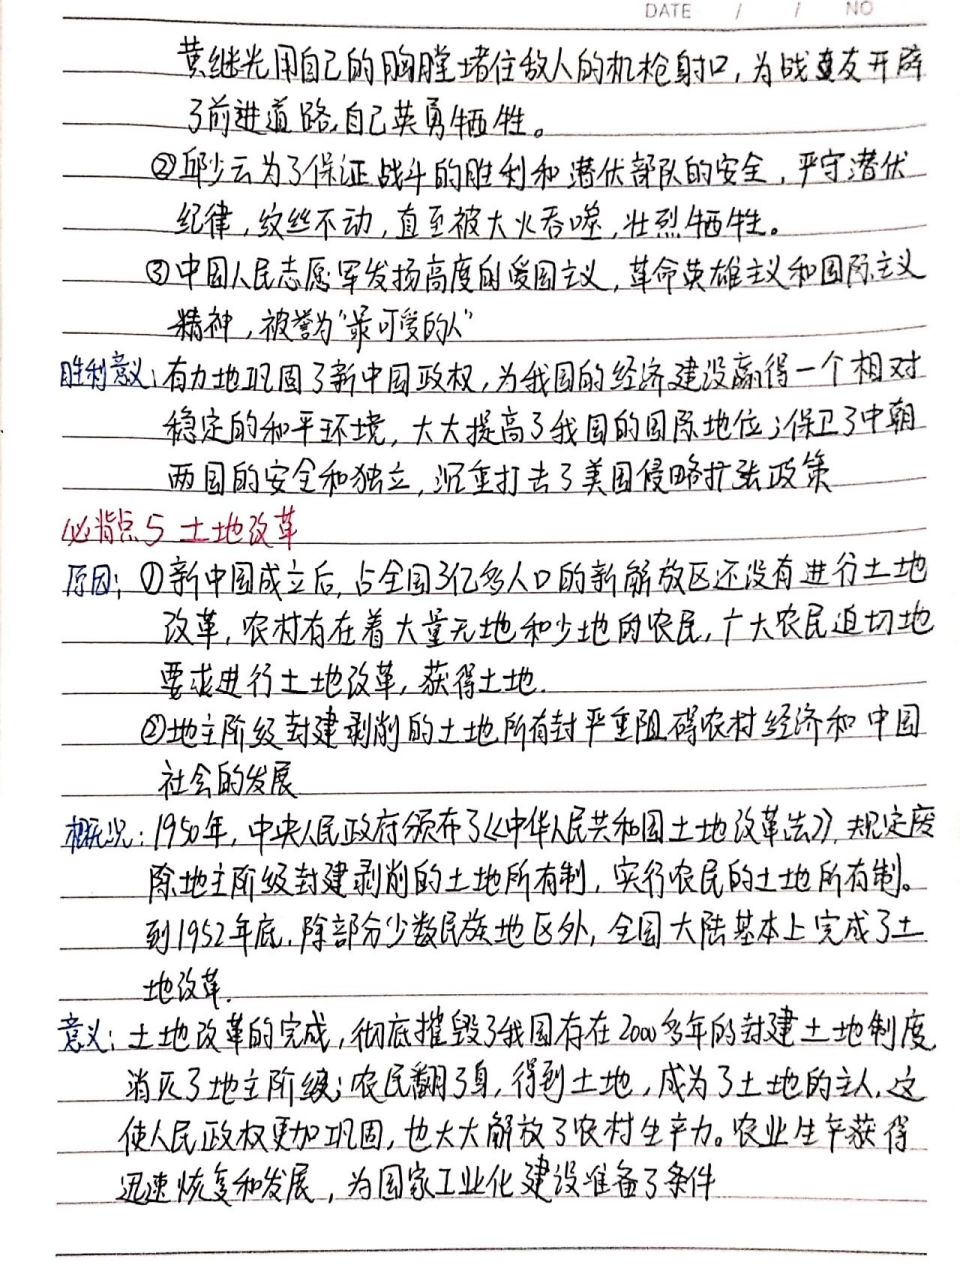 DATE / / NO
黄继光用自己的胸膛堵住敌人的机枪射口，为战友开辟
了前进道路，自己英勇牺牲。
②邱少云为了保证战斗的胜利和潜伏部队的安全，严守潜伏
纪律，纹丝不动，直至被大火吞噬，壮烈牺牲。
③中国人民志愿军发扬高度的爱国主义，革命英雄主义和国际主义
精神，被誉为“最可爱的人”
胜利意义：有力地巩固了新中国政权，为我国的经济建设赢得一个相对
稳定的和平环境，大大提高了我国的国际地位；保卫了中朝
两国的安全和独立，沉重打击了美国侵略扩张政策
必背点5 土地改革
原因：①新中国成立后，占全国3亿多人口的新解放区还没有进行土地
改革，农村有在着大量无地和少地的农民，广大农民迫切地
要求进行土地改革，获得土地.
②地主阶级封建剥削的土地所有封严重阻碍农村经济和中国
社会的发展
概况：1950年，中央人民政府颁布了《中华人民共和国土地改革法》，规定废
除地主阶级封建剥削的土地所有制，实行农民的土地所有制。
到1952年底，除部分少数民族地区外，全国大陆基本上完成了土
地改革.
意义：土地改革的完成，彻底摧毁了我国存在2000多年的封建土地制度
消灭了地主阶级；农民翻了身，得到土地，成为了土地的主人，这
使人民政权更加巩固，也大大解放了农村生产力。农业生产获得
迅速恢复和发展，为国家工业化建设准备了条件